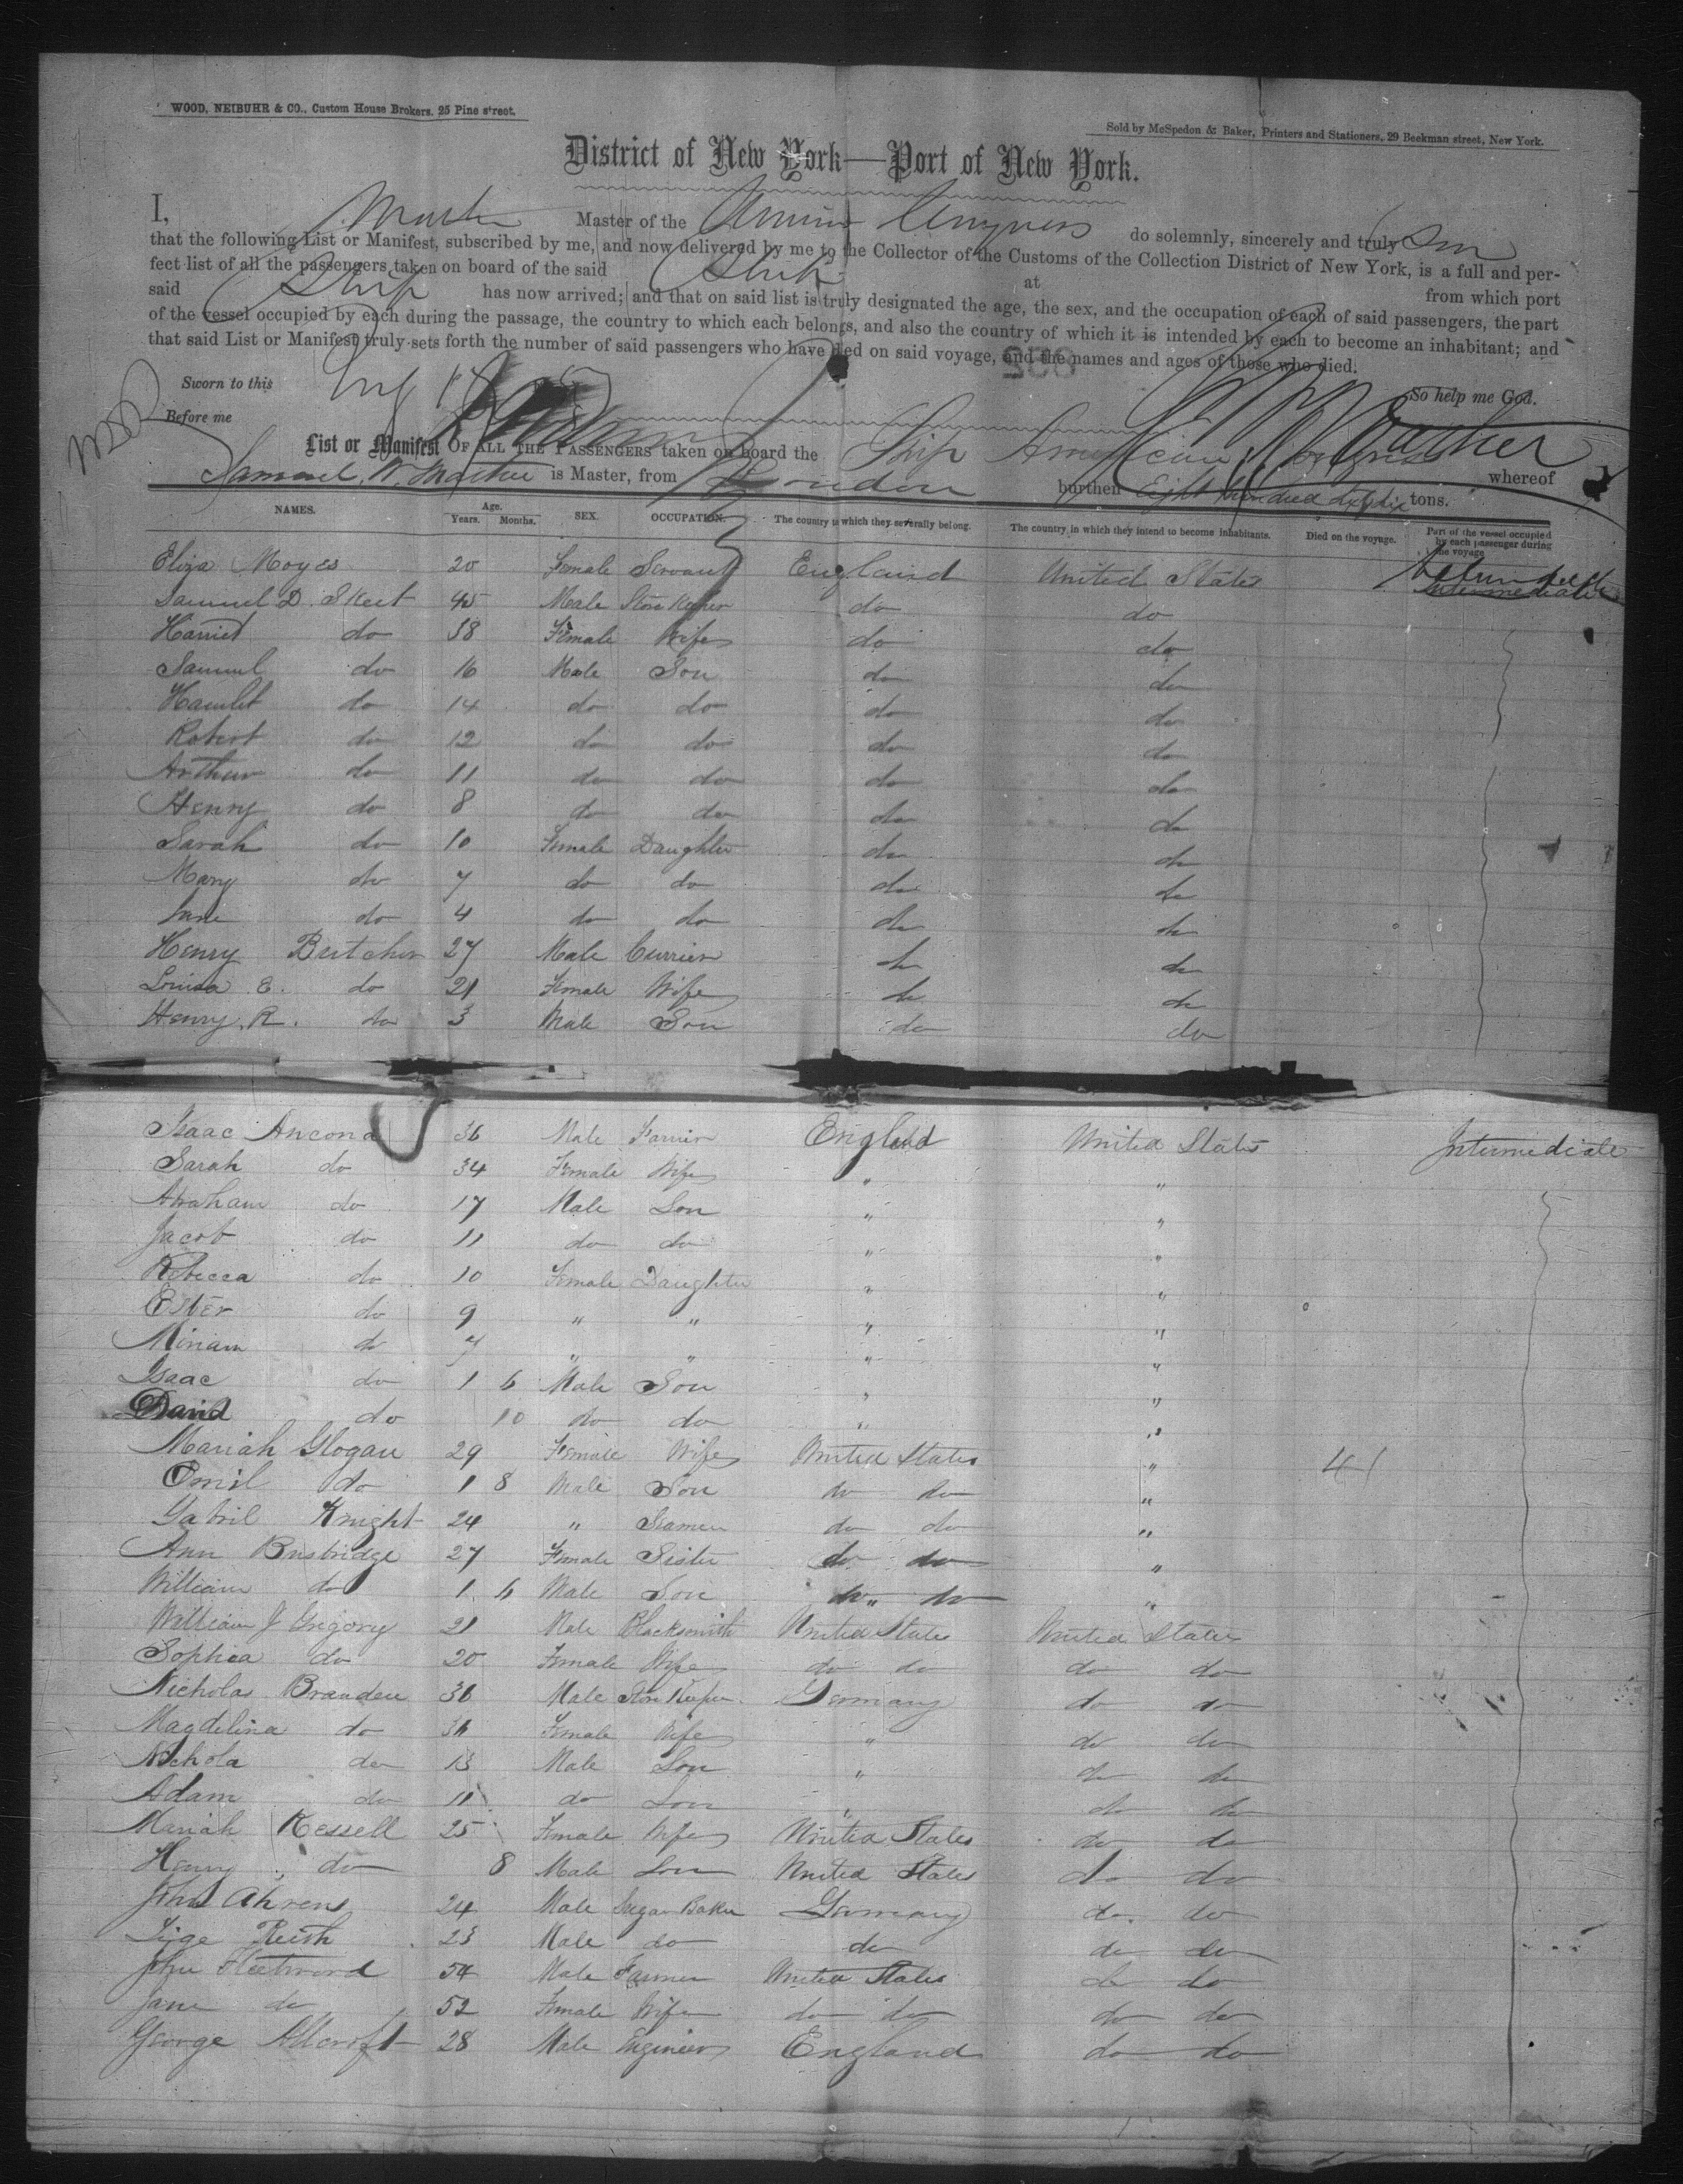 WOOD, NEIBUHR & CO., Custom House Brokers, 25 Pine street.
Sold by McSpedon & Baker, Printers and Stationers, 29 Beekman street, New York.
District of New York—Port of New York.
I, Master of the do solemnly, sincerely and truly
that the following List or Manifest, subscribed by me, and now delivered by me to the Collector of the Customs of the Collection District of New York, is a full and per-
fect list of all the passengers taken on board of the said Ship at from which port
said Ship has now arrived; and that on said list is truly designated the age, the sex, and the occupation of each of said passengers, the part
of the vessel occupied by each during the passage, the country to which each belongs, and also the country of which it is intended by each to become an inhabitant; and
that said List or Manifest truly sets forth the number of said passengers who have died on said voyage, and the names and ages of those who died.
Sworn to this
So help me God.
Before me
List or Manifest OF ALL THE PASSENGERS taken on board the Ship American Congress whereof
Samuel W. is Master, from London burthen Eight hundred tons.
NAMES. Age. Years. Months. SEX. OCCUPATION. The country to which they severally belong. The country in which they intend to become inhabitants. Died on the voyage. Part of the vessel occupied by each passenger during the voyage
Eliza Moyes 20 Female Servant England United States Intermediate
Samuel D. Skeet 45 Male Store Keeper do do
Harriet do 38 Female Wife do do
Samuel do 16 Male Son do do
Hamlet do 14 do do do do
Robert do 12 do do do do
Arthur do 11 do do do do
Henry do 8 do do do do
Sarah do 10 Female Daughter do do
Mary do 7 do do do do
Jane do 4 do do do do
Henry Butcher 27 Male Currier do do
Louisa E. do 21 Female Wife do do
Henry R. do 3 Male Son do do
Isaac Ancona 36 Male England United States Intermediate
Sarah do 34 Female Wife " "
Abraham do 17 Male Son " "
Jacob do 11 do do " "
Rebecca do 10 Female Daughter " "
Ester do 9 " " " "
Miriam do 7 " " " "
Isaac do 1 6 Male Son " "
David do 10 do do " "
Mariah Glogau 29 Female Wife United States " 41
Emil do 1 8 Male Son do do "
Gabril Knight 24 " Seamen do do "
Ann Busbridge 27 Female Sister do do "
William do 1 6 Male Son do do "
William J Gregory 21 Male Blacksmith United States United States
Sophia do 20 Female Wife do do do do
Nicholas Branden 36 Male Store Keeper Germany do do
Magdelina do 36 Female Wife " do do
Nichola do 13 Male Son " do do
Adam do 11 do Son " do do
Mariah Kessell 25 Female Wife United States do do
Henry do 8 Male Son United States do do
John Ahrens 24 Male Sugar Baker Germany do do
23 Male do do do do
John Fleetwood 54 Male Farmer United States do do
Jane do 52 Female Wife do do do do
George Allcroft 28 Male Engineer England do do